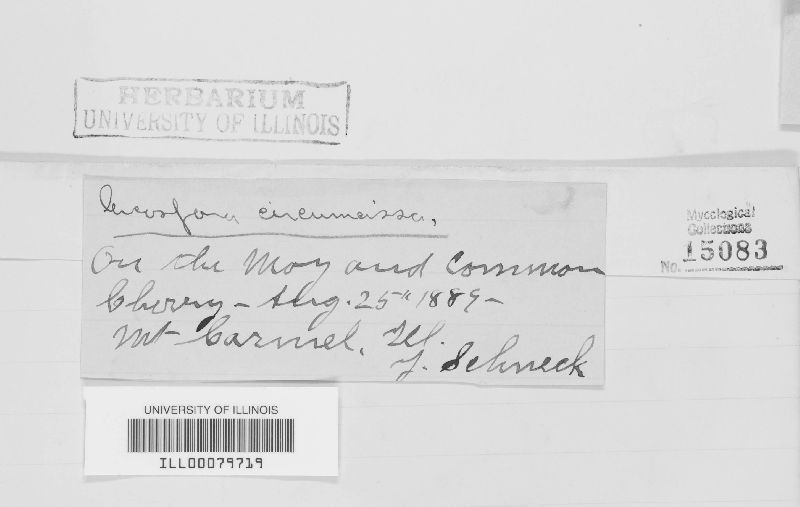 HERBARIUM
UNIVERSITY OF ILLINOIS
Cercospora circumcissa,
On the May and Common
Cherry - Aug. 25" 1889 -
Mt Carmel, Ill.
J. Schneck
Mycological
Collections
No. 15083
UNIVERSITY OF ILLINOIS
ILL00079719